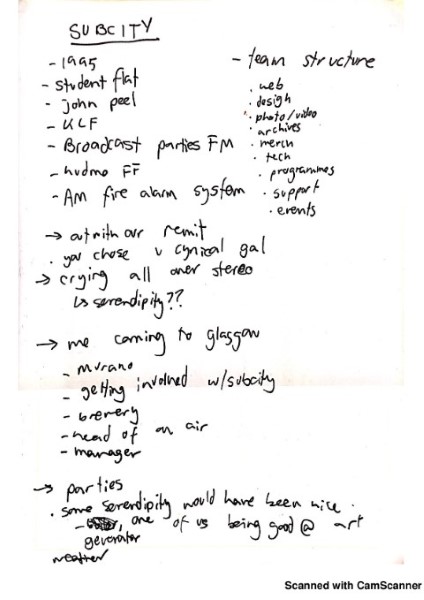 SUBCITY
- 1995
- student flat
- john peel
- KLF
- Broadcast parties FM
- hudmo FF
- AM fire alarm system
- team structure
. web
. design
. photo/video
. archives
. merch
. tech
. programmes
. support
. events
→ outwith our remit
. you chose v cynical gal
→ crying all over stereo
↳ serendipity??
→ me coming to glasgow
- murano
- getting involved w/subcity
- brewery
- head of on air
- manager
→ parties
. some serendipity would have been nice.
- , one of us being good @ art
generator
weather
Scanned with CamScanner